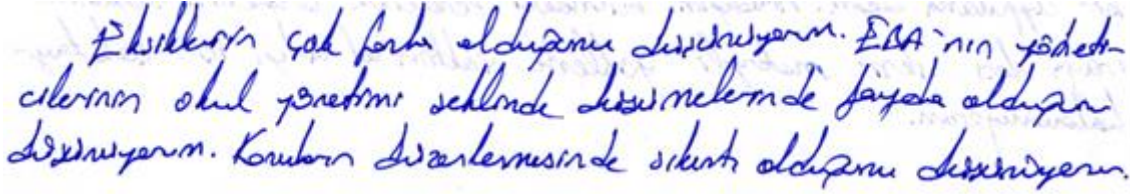 Eksiklerin çok fazla olduğunu düşünüyorum. EBA'nın yöneti-
cilerinin okul yönetimi şeklinde düşünmelerinde fayda olduğunu
düşünüyorum. Konuların düzenlemesinde sıkıntı olduğunu düşünüyorum.